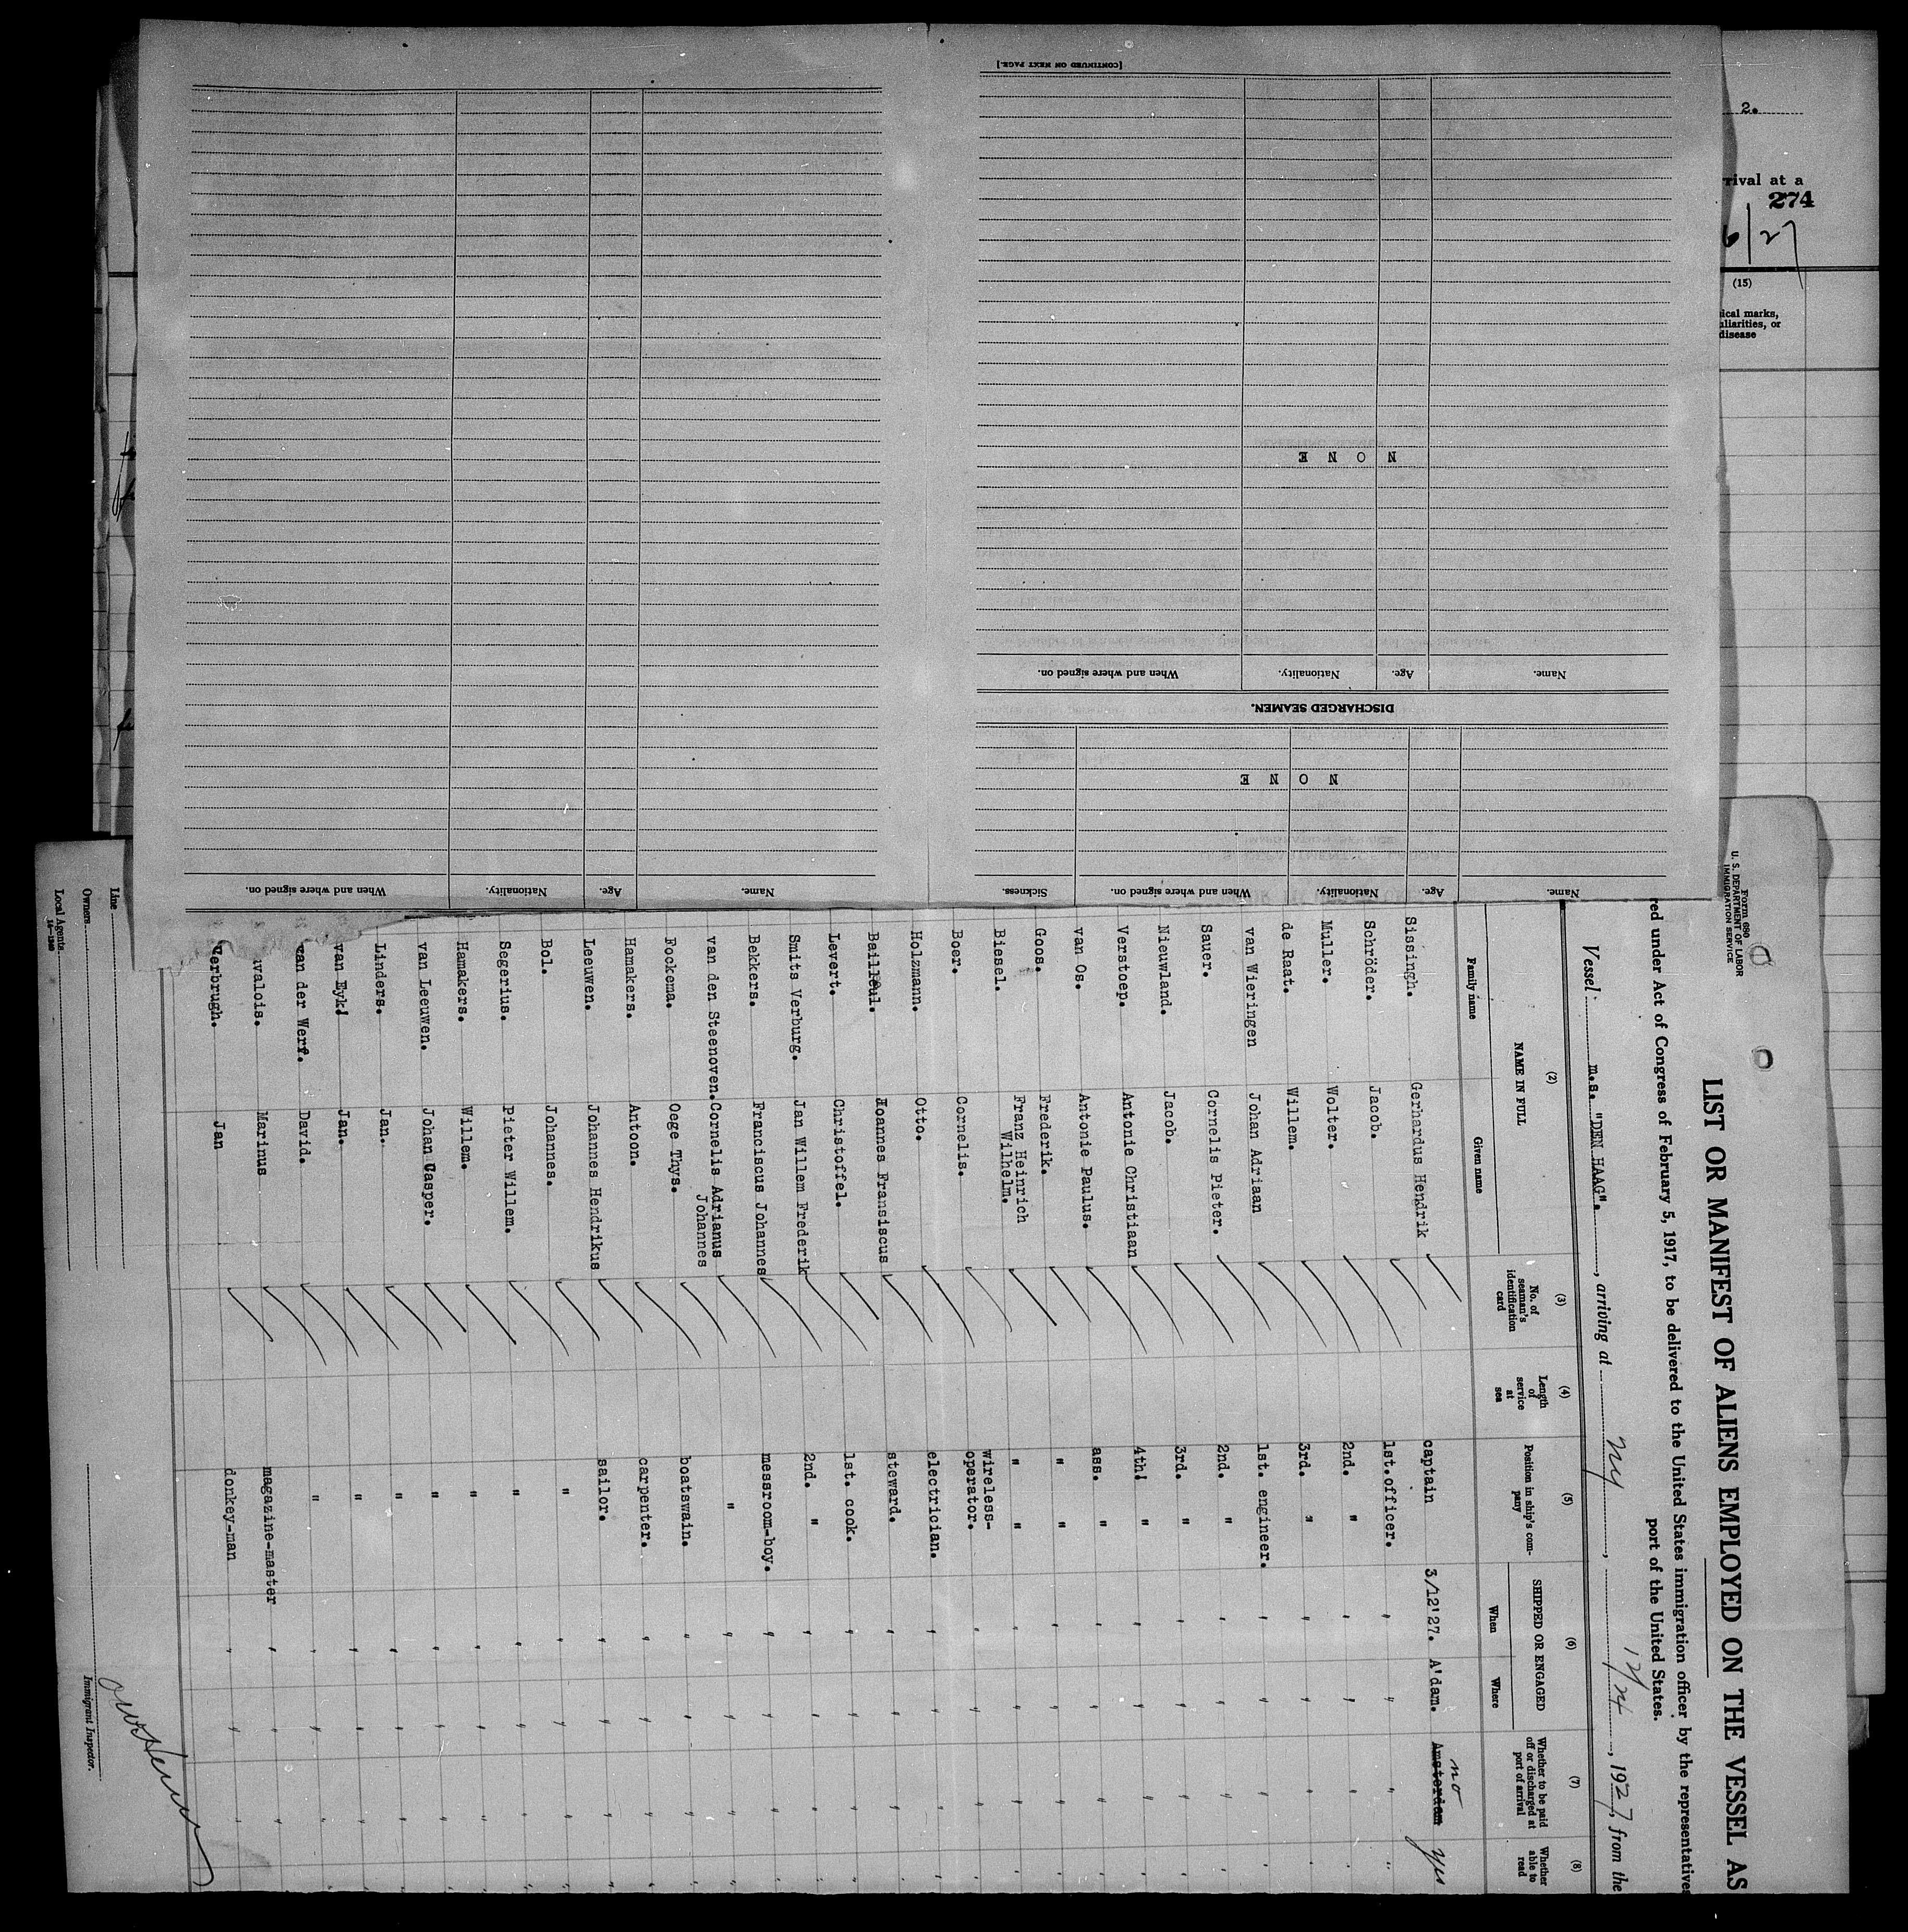 2.
rival at a
274
6/27
(15)
ical marks,
uliarities, or
disease
[CONTINUED ON NEXT PAGE.]
NONE
Name. Age. Nationality. When and where signed on.
DISCHARGED SEAMEN.
NONE
Name. Age. Nationality. When and where signed on. Sickness.
Name. Age. Nationality. When and where signed on.
Form 680
U. S. DEPARTMENT OF LABOR
IMMIGRATION SERVICE
LIST OR MANIFEST OF ALIENS EMPLOYED ON THE VESSEL AS
red under Act of Congress of February 5, 1917, to be delivered to the United States immigration officer by the representatives
port of the United States.
Vessel m.s. "DEN HAAG"., arriving at NY, 12/24, 1927, from the
(2) (3) (4) (5) (6) (7) (8)
NAME IN FULL
Family name Given name
No. of seaman's identification card
Length of service at sea
Position in ship's company
SHIPPED OR ENGAGED
When Where
Whether to be paid off or discharged at port of arrival
Whether able to read
Sissingh. Gerhardus Hendrik captain 3/12'27. A'dam. Amsterdam no yes
Schröder. Jacob. 1st.officer. " " " "
Muller. Wolter. 2nd. " " " " "
de Raat. Willem. 3rd. " " " " "
van Wieringen Johan Adriaan 1st. engineer. " " " "
Sauer. Cornelis Pieter. 2nd. " " " " "
Nieuwland. Jacob. 3rd. " " " " "
Verstoep. Antonie Christiaan 4th! " " " " "
van Os. Antonie Paulus. ass. " " " " "
Goos. Frederik. " " " " " "
Biesel. Franz Heinrich Wilhelm. " " " " " "
Boer. Cornelis. wireless-operator. " " " "
Holzmann. Otto. electrician. " " " "
Bailleul. Joannes Fransiscus steward. " " " "
Levert. Christoffel. 1st. cook. " " " "
Smits Verburg. Jan Willem Frederik 2nd. " " " " "
Bekkers. Franciscus Johannes messroom-boy. " " " "
van den Steenoven. Cornelis Adrianus Johannes " " " " "
Fockema. Oege Thys. boatswain. " " " "
Hamakers. Antoon. carpenter. " " " "
Leeuwen. Johannes Hendrikus sailor. " " " "
Bol. Johannes. " " " " "
Segerius. Pieter Willem. " " " " "
Hamakers. Willem. " " " " "
van Leeuwen. Johan Casper. " " " " "
Linders. Jan. " " " " "
van Eyk! Jan. " " " " "
van der Werf. David. " " " " "
valois. Marinus magazine-master " " " "
Verbrugh. Jan donkey-man " " " "
Line
Owners
Local Agents
14—1240
Immigrant Inspector.